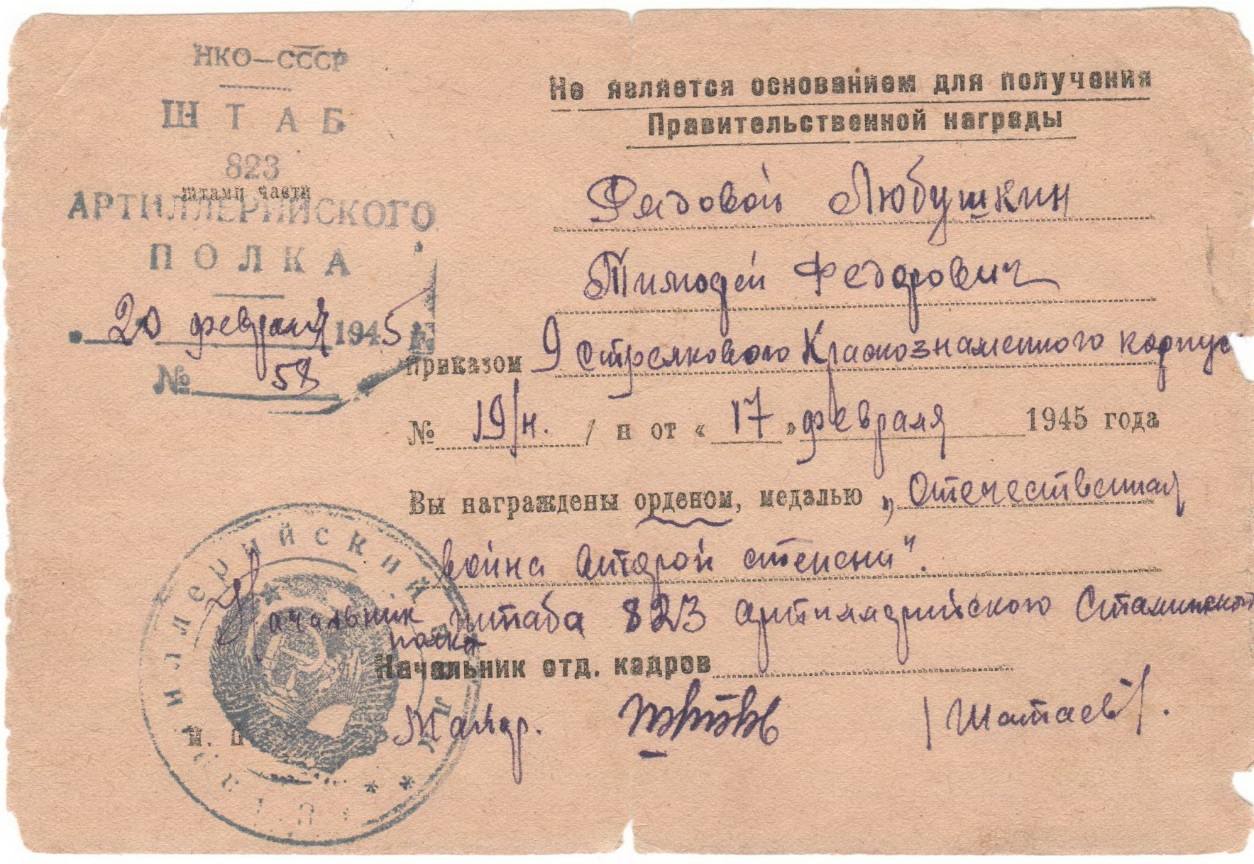 НКО—СССР
ШТАБ
823
штамп части
АРТИЛЛЕРИЙСКОГО
ПОЛКА
20 февраля 1945 г.
№ 58
Не является основанием для получения
Правительственной награды
Рядовой Любушкин
Тимофей Федорович
Приказом 9 стрелкового Краснознаменного корпус
№ 19/н. / н от « 17 » февраля 1945 года
Вы награждены орденом, медалью „Отечественная
война второй степени".
Начальник штаба 823 артиллерийского Сталинской
полка
Начальник отд. кадров
М. П.
Майор. /Шатаев/.
Артиллерийский